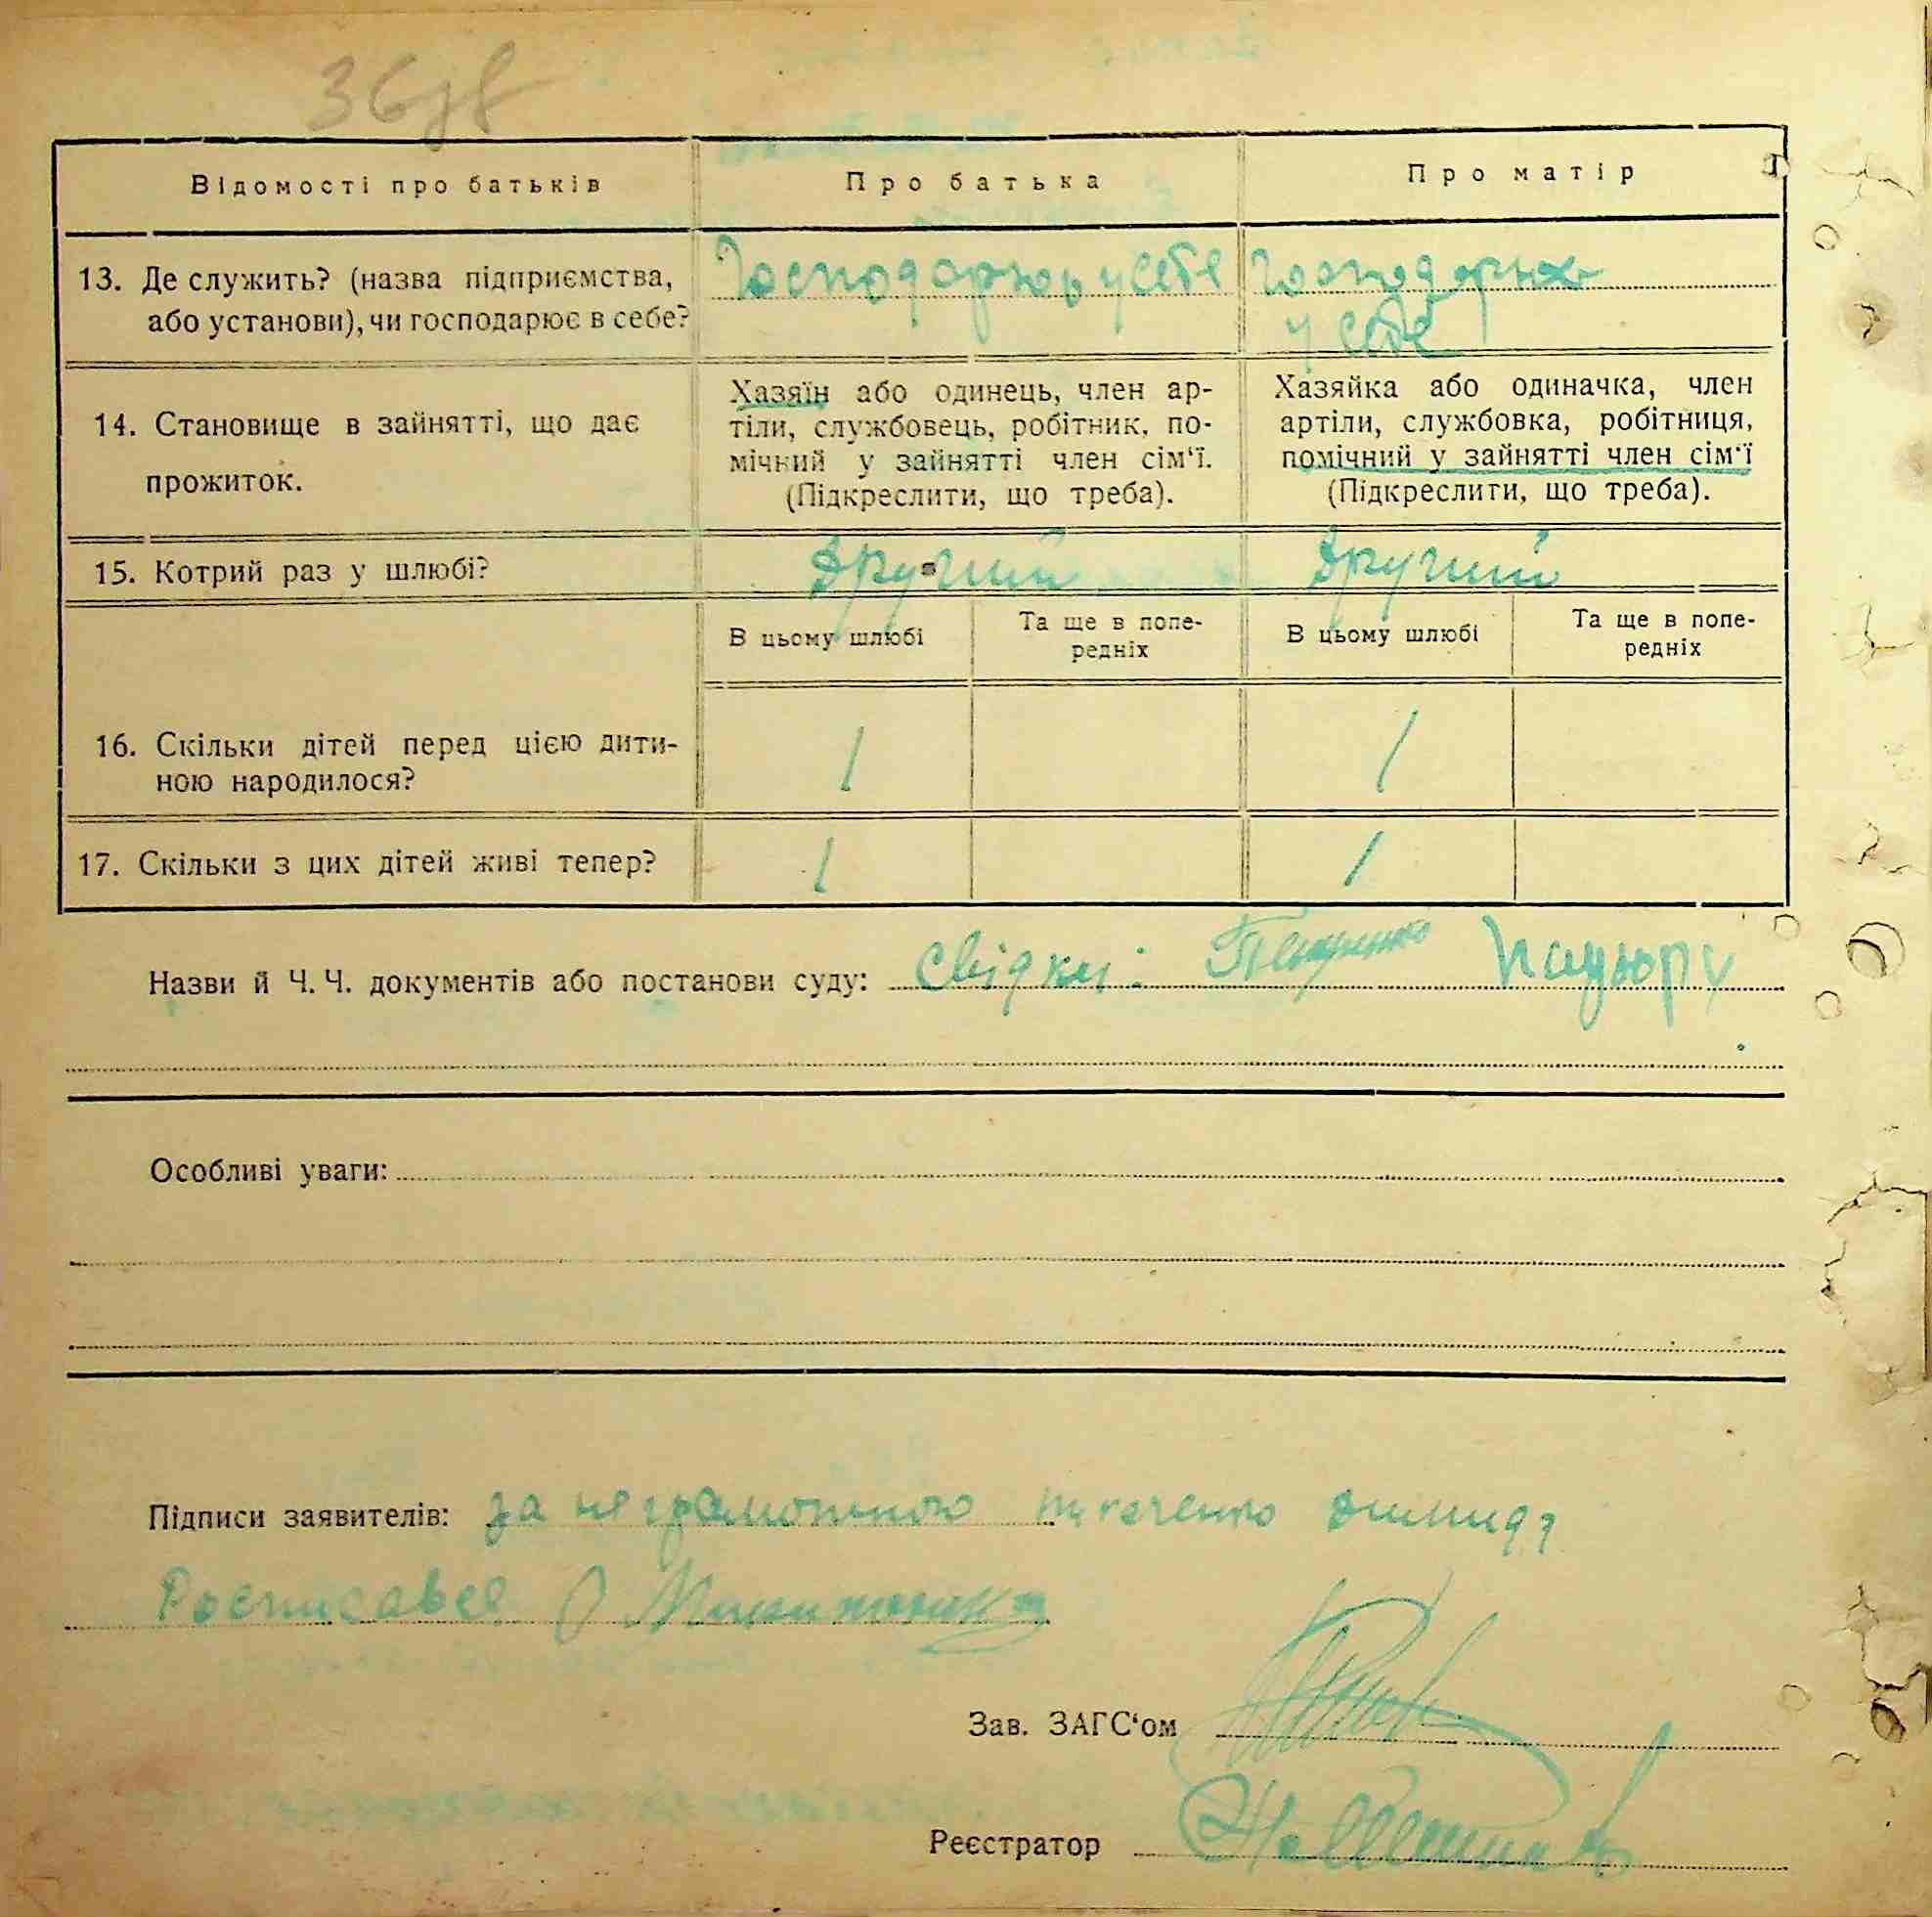 Відомості про батьків
Про батька
Про матір
13. Де служить? (назва підприємства,
або установи), чи господарює в себе?
Господарює у себе
Господарює
у себе
14. Становище в зайнятті, що дає
прожиток.
Хазяїн або одинець, член ар-
тіли, службовець, робітник, по-
мічний у зайнятті член сім'ї.
(Підкреслити, що треба).
Хазяйка або одиначка, член
артіли, службовка, робітниця,
помічний у зайнятті член сім'ї
(Підкреслити, що треба).
15. Котрий раз у шлюбі?
другий
другий
В цьому шлюбі
Та ще в попе-
редніх
В цьому шлюбі
Та ще в попе-
редніх
16. Скільки дітей перед цією дити-
ною народилося?
1
1
17. Скільки з цих дітей живі тепер?
1
1
Назви й Ч. Ч. документів або постанови суду: свідки:
Особливі уваги:
Підписи заявителів: за неграмотного
Росписався
Зав. ЗАГС'ом
Реєстратор